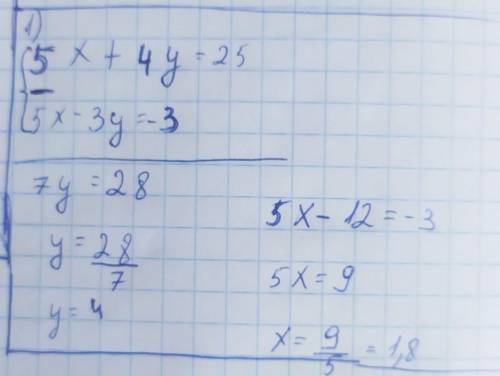 1)
5x + 4y = 25
−
5x - 3y = -3
7y = 28
y = 28/7
y = 4
5x - 12 = -3
5x = 9
x = 9/5 = 1,8